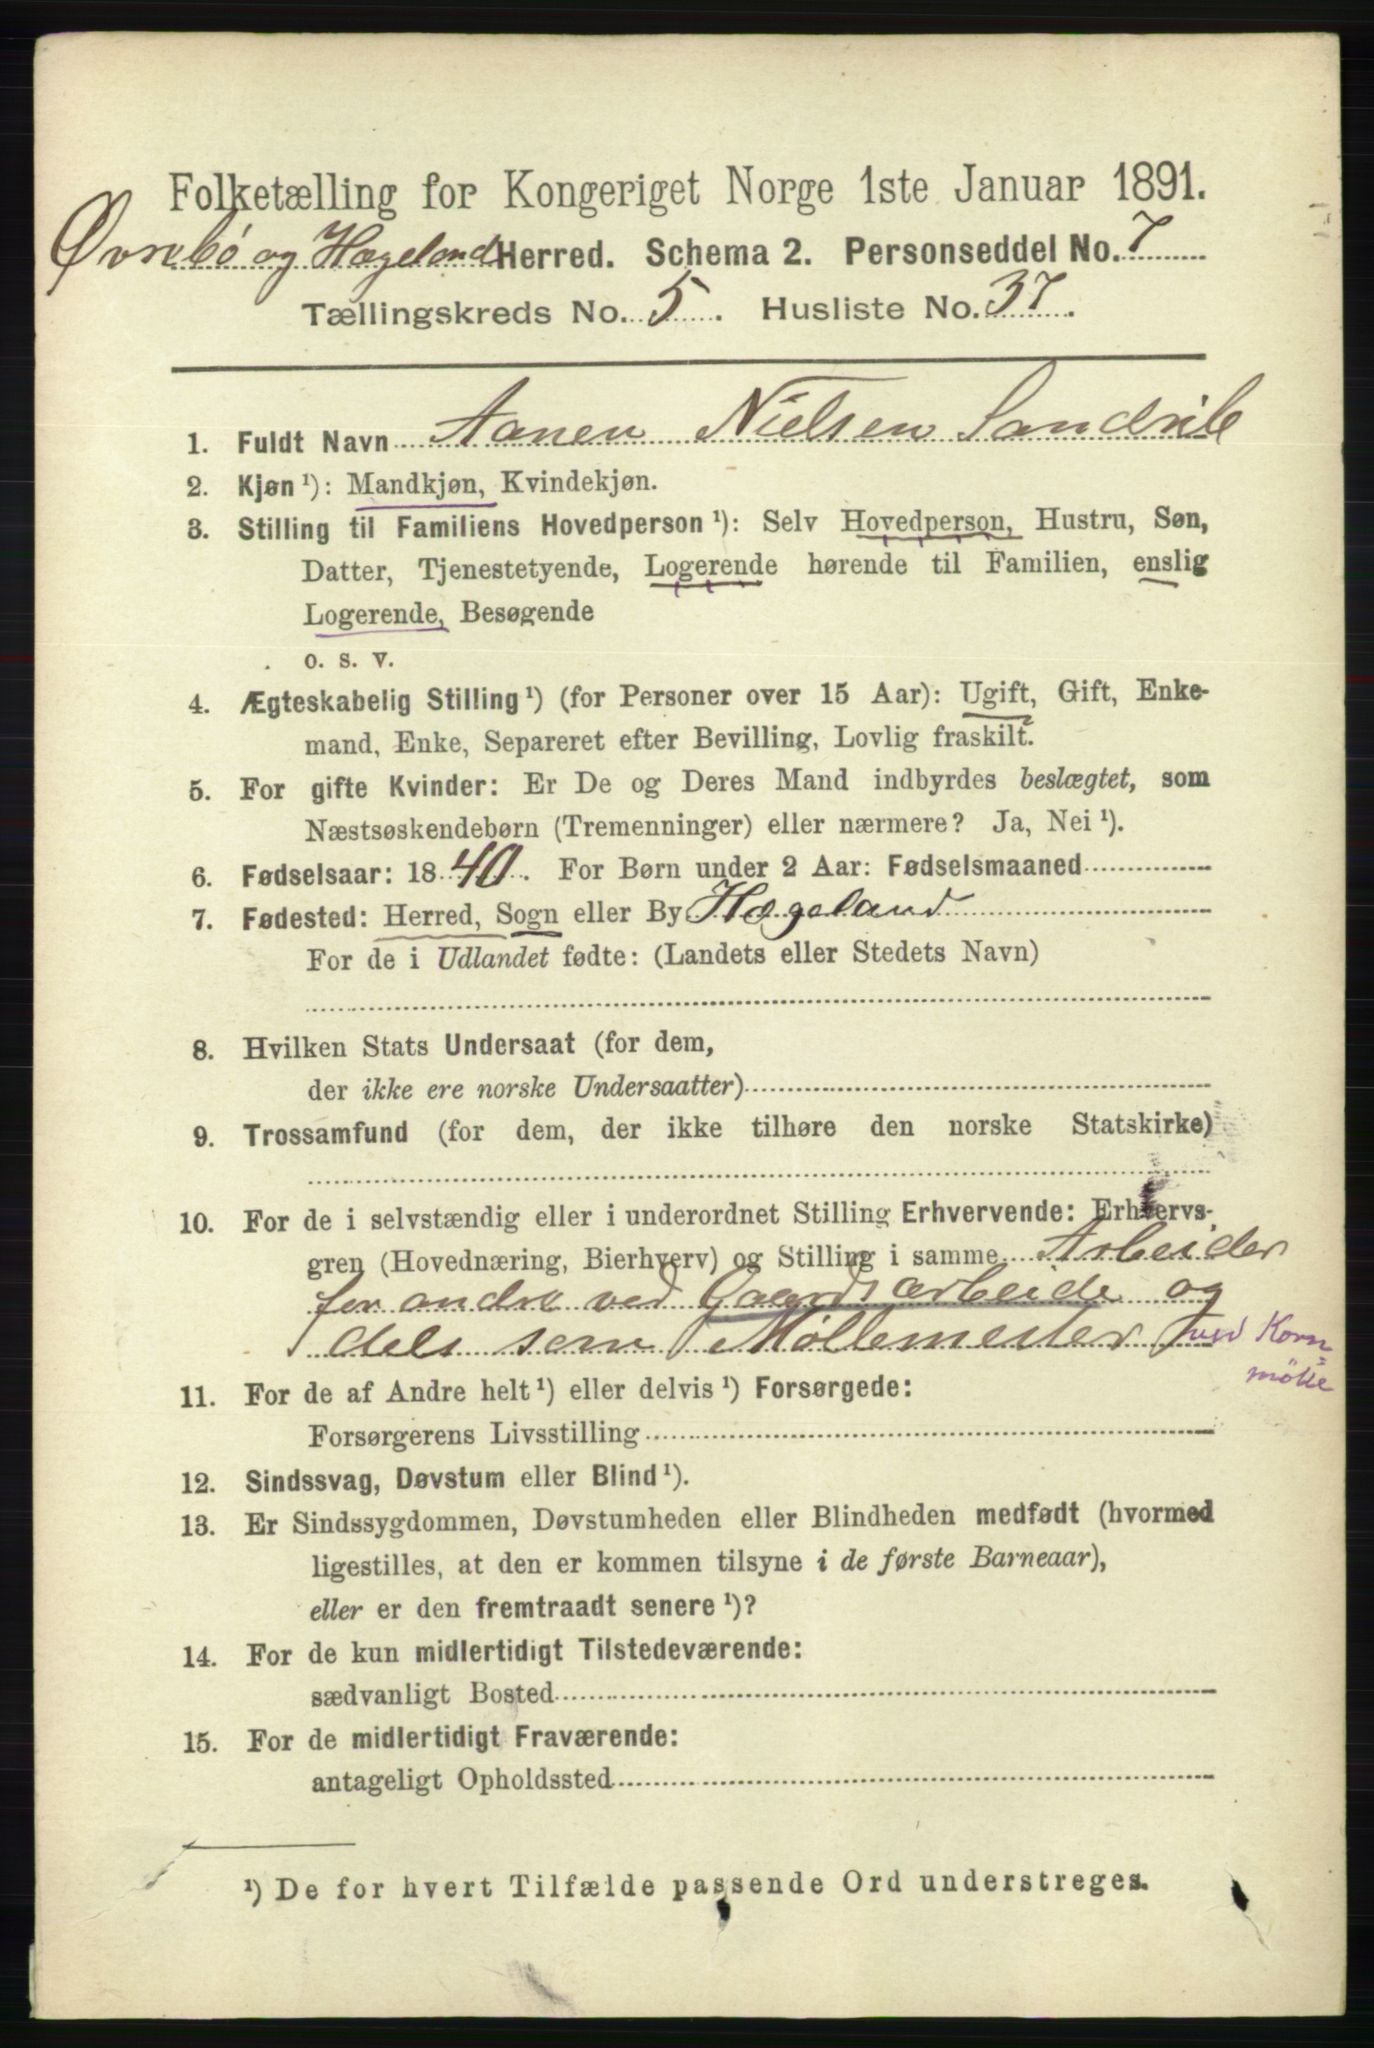 Folketælling for Kongeriget Norge 1ste Januar 1891.
Øvrebø og Hægeland Herred. Schema 2. Personseddel No. 7
Tællingskreds No. 5. Husliste No. 37.
1. Fuldt Navn Aanen Nielsen
2. Kjøn ¹): Mandkjøn, Kvindekjøn.
3. Stilling til Familiens Hovedperson ¹): Selv Hovedperson, Hustru, Søn,
Datter, Tjenestetyende, Logerende hørende til Familien, enslig
Logerende, Besøgende
o. s. v.
4. Ægteskabelig Stilling ¹) (for Personer over 15 Aar): Ugift, Gift, Enke-
mand, Enke, Separeret efter Bevilling, Lovlig fraskilt.
5. For gifte Kvinder: Er De og Deres Mand indbyrdes beslægtet, som
Næstsøskendebørn (Tremenninger) eller nærmere? Ja, Nei ¹).
6. Fødselsaar: 1840. For Børn under 2 Aar: Fødselsmaaned
7. Fødested: Herred, Sogn eller By Hægeland
For de i Udlandet fødte: (Landets eller Stedets Navn)
8. Hvilken Stats Undersaat (for dem,
der ikke ere norske Undersaatter)
9. Trossamfund (for dem, der ikke tilhøre den norske Statskirke)
10. For de i selvstændig eller i underordnet Stilling Erhvervende: Erhvervs-
gren (Hovednæring, Bierhverv) og Stilling i samme Arbeider
for andre ved Gaardsarbeide og
dels som Møllemester ved Korn
mølle
11. For de af Andre helt ¹) eller delvis ¹) Forsørgede:
Forsørgerens Livsstilling
12. Sindssvag, Døvstum eller Blind ¹).
13. Er Sindssygdommen, Døvstumheden eller Blindheden medfødt (hvormed
ligestilles, at den er kommen tilsyne i de første Barneaar),
eller er den fremtraadt senere ¹)?
14. For de kun midlertidigt Tilstedeværende:
sædvanligt Bosted
15. For de midlertidigt Fraværende:
antageligt Opholdssted
¹) De for hvert Tilfælde passende Ord understreges.